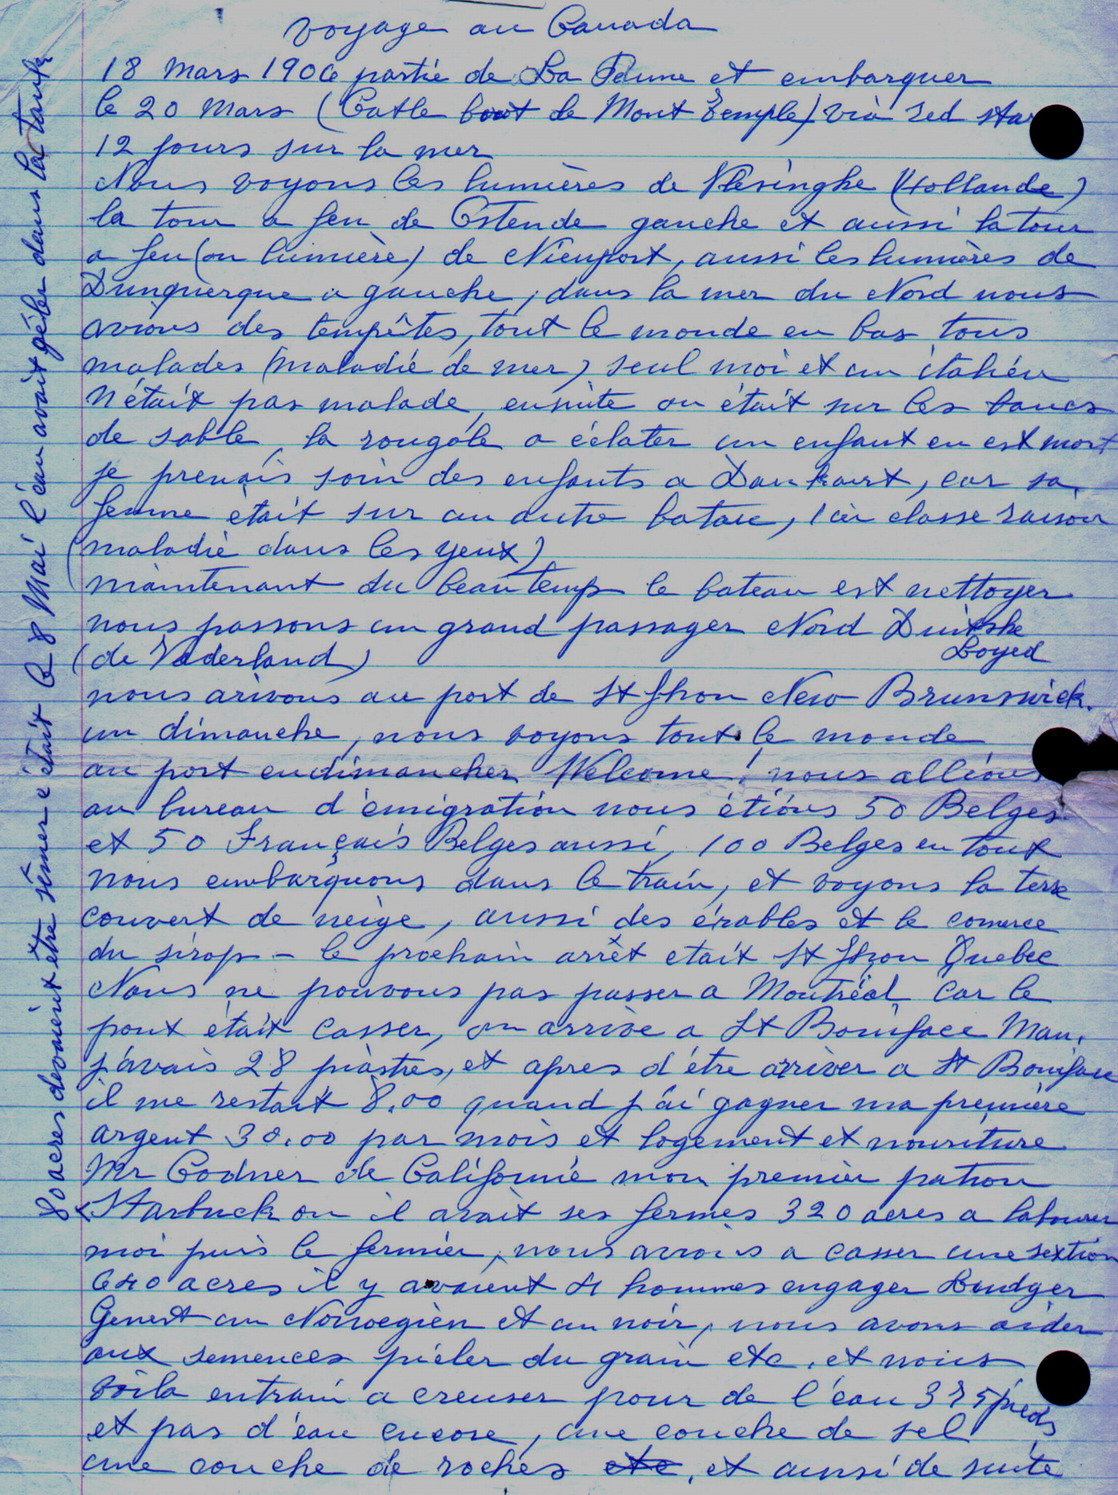 voyage au Canada
18 Mars 1906 partie de La Panne et embarquer
le 20 Mars (Catle boat de Mont Temple) via red star
12 jours sur la mer
Nous voyons les lumières de Vlesinghe (Hollande)
la tour a feu de Ostende gauche et aussi la tour
a feu (ou lumière) de Nieuport, aussi les lumières de
Dunquerque a gauche, dans la mer du Nord nous
avions des tempêtes, tout le monde en bas tous
malades (maladié de mer) seul moi et un itahén
n'était pas malade, ensuite on était sur les bancs
de sable, la rougole a éclater un enfant en est mort
je prenais soin des enfants a Dankaert, car sa
femme était sur un autre bateau, 1 classe raison
(maladie dans les yeux)
maintenant du beau temps le bateau est nettoyer
nous passons un grand passager Nord Duitshe
Loyed
(de Vaderland)
nous arivons au port de St Jhon New Brunswick.
un dimanche, nous voyons tout le monde
au port endimancher Welcome! nous allions
au bureau d'émigration nous étions 50 Belges
et 50 Français Belges aussi, 100 Belges en tout
nous embarquons dans le train, et voyons la terre
couvert de neige, aussi des érables et le comerce
du sirop - le prochain arrêt etait St Jhon Quebec
Nous ne pouvous pas passer a Montréal car le
pont était casser, on arrive a St Boniface Man.
j'avais 28 piastres, et apres d'être arriver a St Boniface
il me restait 8.00 quand j'ai gagner ma première
argent 30.00 par mois et logement et nouriture
Mr Codner de Californie mon premier patron
Starbuck ou il avait ses fermes 320 acres a labourer
moi puis le fermier, nous avons a casser une sextion
640 acres il y avaient 4 hommes engager Ludger
Genest un Norvegien et un noir, nous avons aider
aux semences picler du grain etc. et nous
voila entrain a creuser pour de l'éau 335 pieds
et pas d'éau encore, une couche de sel
une couche de roches etc, et aussi de suite
80 acres devaient être sêmer c'était le 8 Mai l'éau avait géler dans la tank